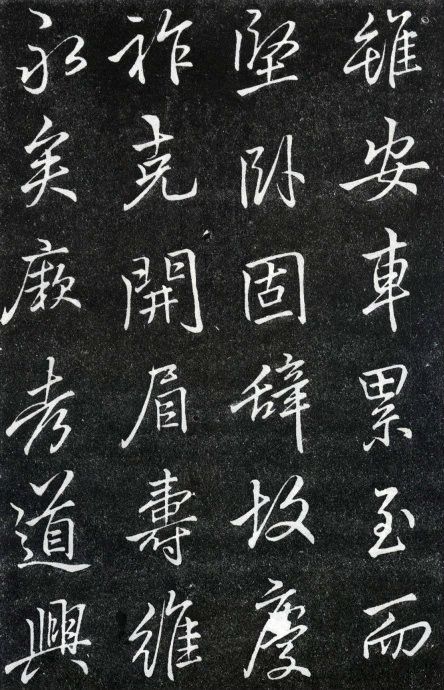 雖安車累至而
堅卧固辞故慶
祚克開眉壽維
永矣厥考道興